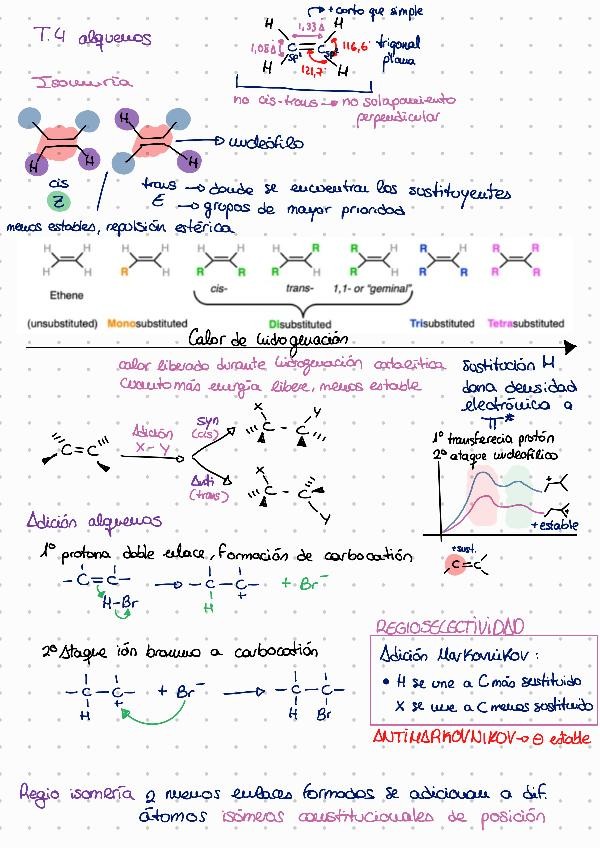 T.4 alquenos
→ + corto que simple
H H
1,33Å
1,08Å C = C 116,6° trigonal plana
sp² sp²
H 121,7° H
Isomería
no cis-trans → no solapamiento
perpendicular
H H H H
nucleófilo
cis
Z
trans → donde se encuentran los sustituyentes
E → grupos de mayor prioridad
menos estables, repulsión estérica
H H H H R R H R R H R R R R
H H R H H H R H R H R H R R
cis- trans- 1,1- or "geminal"
Ethene
(unsubstituted) Monosubstituted Disubstituted Trisubstituted Tetrasubstituted
Calor de hidrogenación
calor liberado durante hidrogenación catalítica
Cuanto más energía libere, menos estable
Sustitución H
dona densidad
electrónica a
π*
C=C
Adición
X-Y
syn
(cis)
X Y
C - C
Anti
(trans)
X
C - C
Y
1º transferecia protón
2º ataque nucleofílico
+
+
+ estable
+ sust.
C=C
Adición alquenos
1º protona doble enlace, Formación de carbocatión
-C=C- → -C-C- + Br⁻
H-Br H +
REGIOSELECTIVIDAD
Adición Markovnikov:
• H se une a C más sustituido
X se une a C menos sustituido
ANTIMARKOVNIKOV → ⊖ estable
2º Ataque ión bromuro a carbocatión
-C-C- + Br⁻ → -C-C-
H + H Br
Regio isomería 2 nuenos enlaces formados se adicionan a dif.
átomos isómeros constitucionales de posición